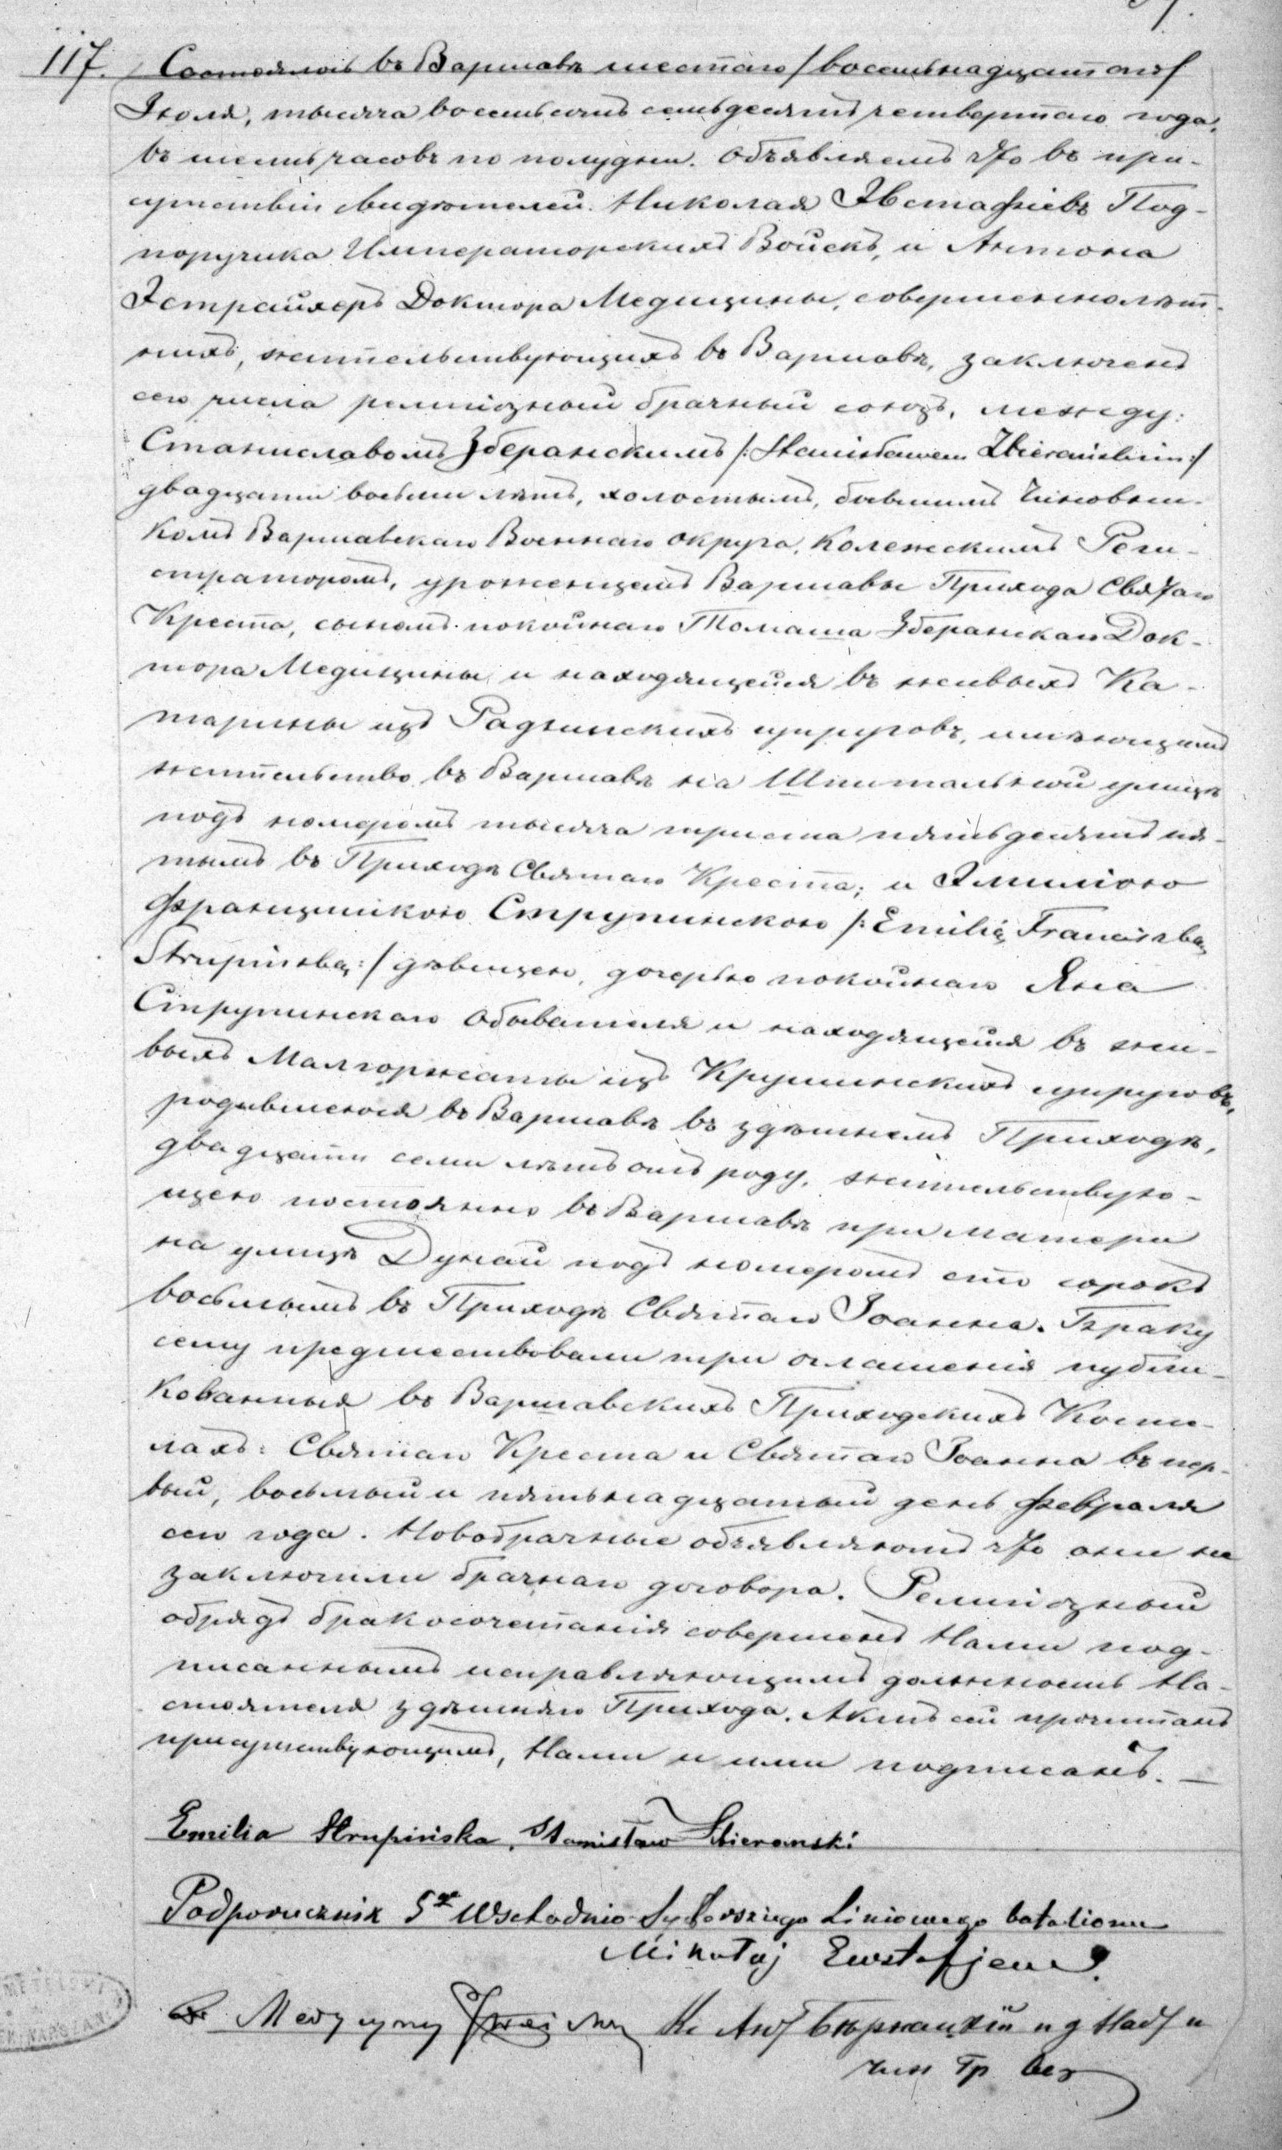 117. Состоялось въ Варшавѣ шестаго /восемьнадцатаго/
Іюля, тысяча восемьсотъ семьдесятъ четвертаго года,
въ шесть часовъ по полудни. Объявляемъ что въ при-
сутствіи свидѣтелей Николая Эвстафіевъ Под-
поручика Императорскихъ Войскъ, и Антона
Эстрайхеръ Доктора Медицины, совершеннолѣт-
нихъ, жительствующихъ въ Варшавѣ, заключенъ
сего числа религіозный брачный союзъ, между:
Станиславомъ Зберанскимъ /:Stanisławem Zbierańskim:/
двадцати восьми лѣтъ, холостымъ, бывшимъ Чиновни-
комъ Варшавскаго Военнаго округа, Колежскимъ Реги-
страторомъ, уроженцемъ Варшавы Прихода Святаго
Креста, сыномъ покойнаго Томаша Зберанскаго Док-
тора Медицины и находящейся въ живыхъ Ка-
тарины изъ супруговъ, имѣющимъ
жительство въ Варшавѣ на Шпитальной улицѣ
подъ номеромъ тысяча триста пятьдесятъ пя-
тымъ въ Приходѣ Святаго Креста; и Эмиліею
Францишкою Струпинскою /:Emilią Franciszką
Strupińską:/ дѣвицею, дочерью покойнаго Яна
Струпинскаго Обывателя и находящейся въ жи-
выхъ Малгоржаты изъ Крушинскихъ супруговъ,
родившеюся въ Варшавѣ въ здѣшнемъ Приходѣ,
двадцати семи лѣтъ отъ роду, жительствую-
щею постоянно въ Варшавѣ при матери
на улицѣ Дунай подъ номеромъ сто сорокъ
восьмымъ въ Приходѣ Святаго Іоанна. Браку
сему предшествовали три оглашенія публи-
кованныя въ Варшавскихъ Приходскихъ Косте-
лахъ: Святаго Креста и Святаго Іоанна въ пер-
вый, восьмый и пятьнадцатый день Февраля
сего года. Новобрачные объявляютъ что они не
заключили брачнаго договора. Религіозный
обрядъ бракосочетанія совершенъ Нами под-
писаннымъ исправляющимъ должность На-
стоятеля здѣшняго Прихода. Актъ сей прочитанъ
присутствующимъ, Нами и ими подписанъ. —
Emilia Strupińska, Stanisław Zbieranski
Podporucznik 5go Wschodnio Syberskiego Liniowego batalionu
Mikołaj Ewstafjew.
Medycyny Кс